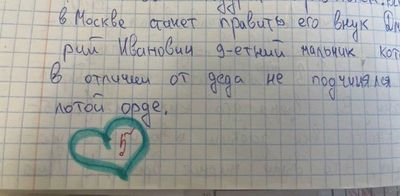 в Москве станет править его внук Дми
рий Иванович 9-етний мальчик кот
в отличии от деда не подчинялся
лотой орде.
5